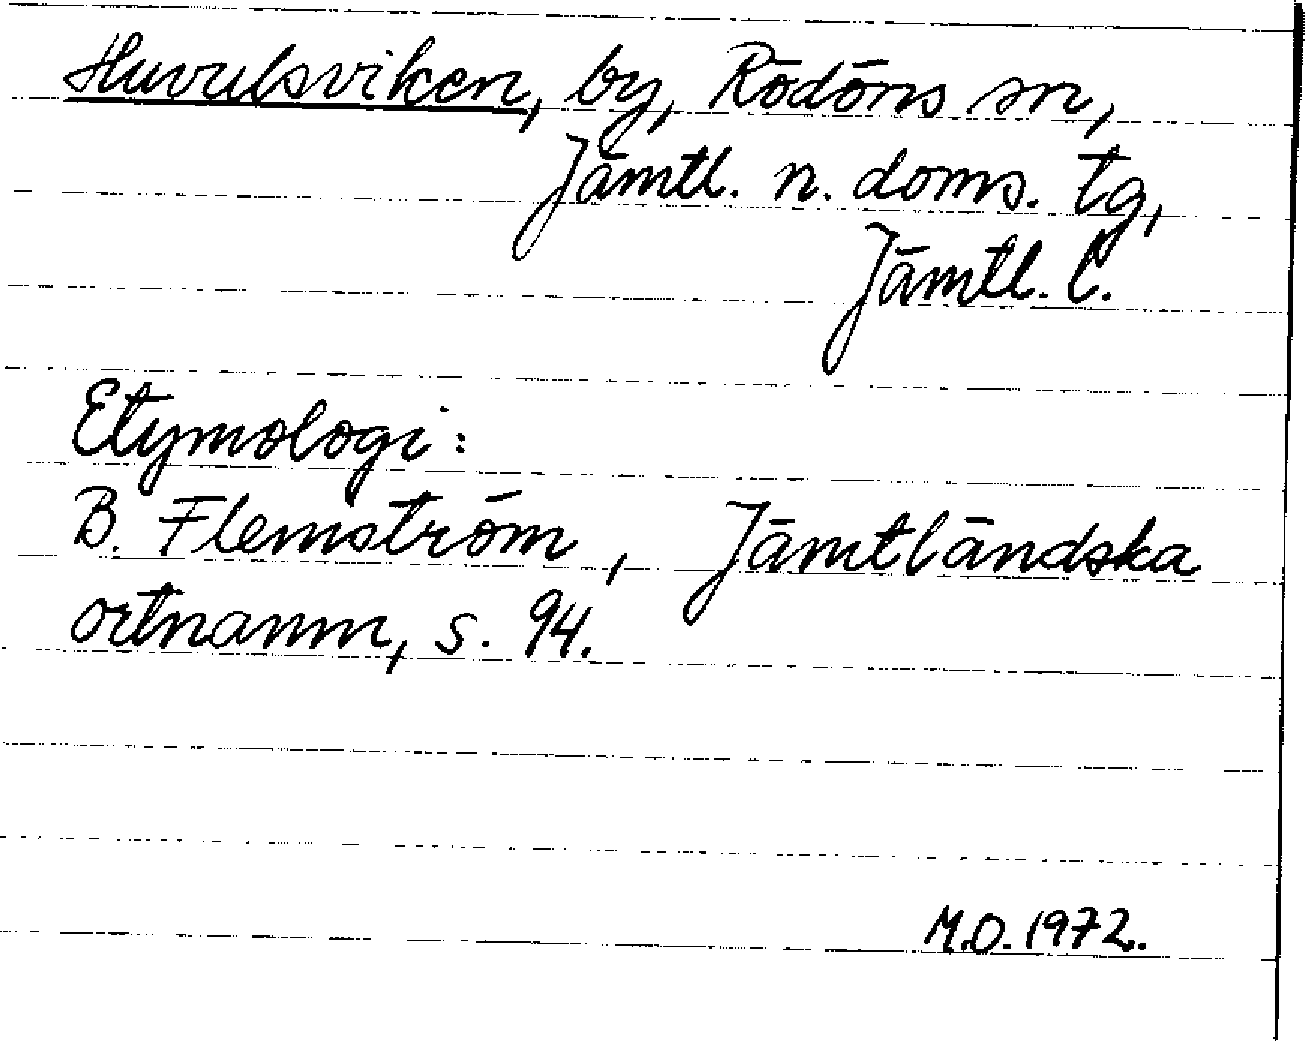 Huvulsviken, by, Rödöns sn,
Jämtl. n. doms. tg,
Jämtl. l.
Etymologi:
B. Flemström, Jämtländska
ortnamn, s. 94.
M.O. 1972.